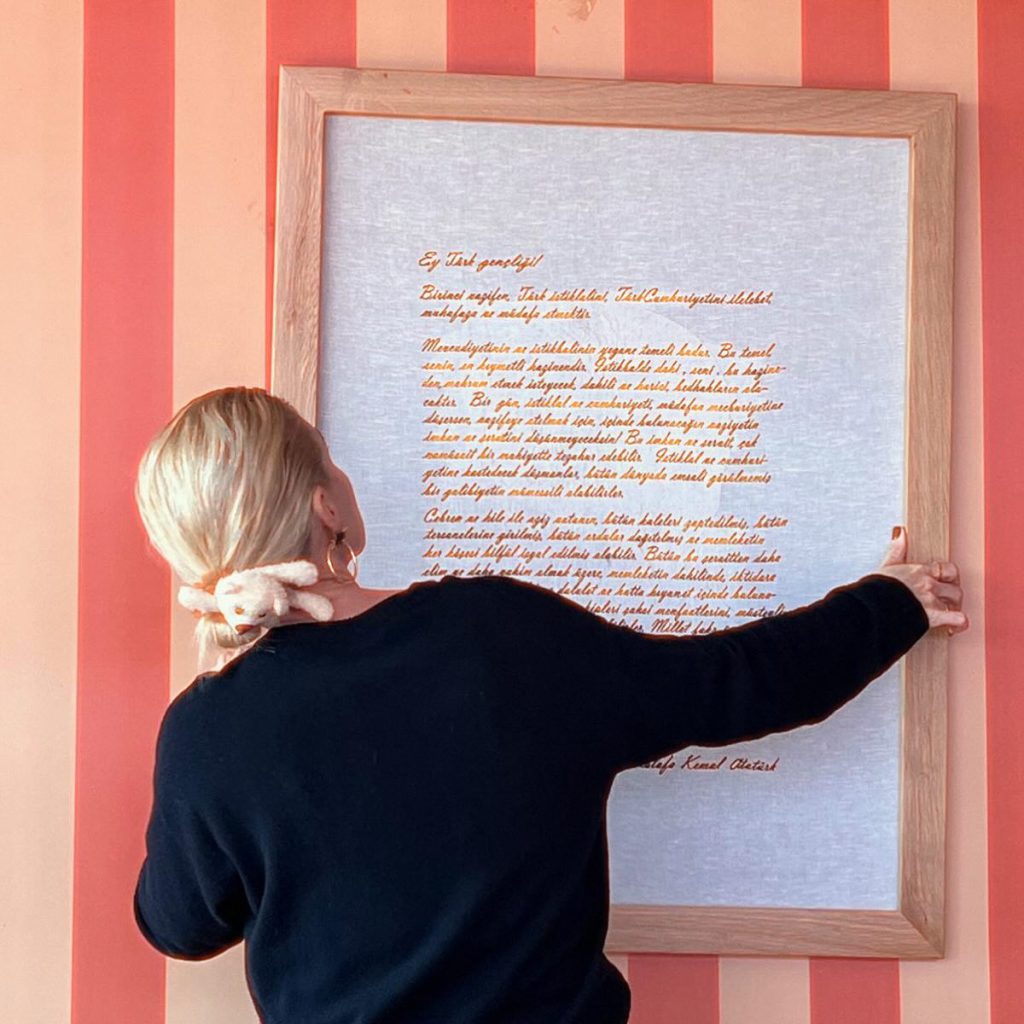 Ey Türk gençliği!
Birinci vazifen, Türk istiklalini, Türk Cumhuriyetini ilelebet,
muhafaza ve müdafa etmektir.
Mevcudiyetinin ve istikbalinin yegane temeli budur. Bu temel
senin, en kıymetli hazinendir. İstikbalde dahi, seni, bu hazine-
den mahrum etmek isteyecek, dahili ve harici, bedhahların ola-
caktır. Bir gün, istiklal ve cumhuriyeti, müdafaa mecburiyetine
düşersen, vazifeye atılmak için, içinde bulunacağın vaziyetin
imkan ve şeraitini düşünmeyeceksin! Bu imkan ve şerait, çok
namüsait bir mahiyette tezahür edebilir. İstiklal ve cumhuri-
yetine kastedecek düşmanlar, bütün dünyada emsali görülmemiş
bir galibiyetin mümessili olabilirler.
Cebren ve hile ile aziz vatanın, bütün kaleleri zaptedilmiş, bütün
tersanelerine girilmiş, bütün ordular dağıtılmış ve memleketin
her köşesi bilfiil işgal edilmiş olabilir. Bütün bu şeraitten daha
elim ve daha vahim olmak üzere, memleketin dahilinde, iktidara
dalalet ve hatta hıyanet içinde buluna-
şahsi menfaatlerini,
Millet
Kemal Atatürk